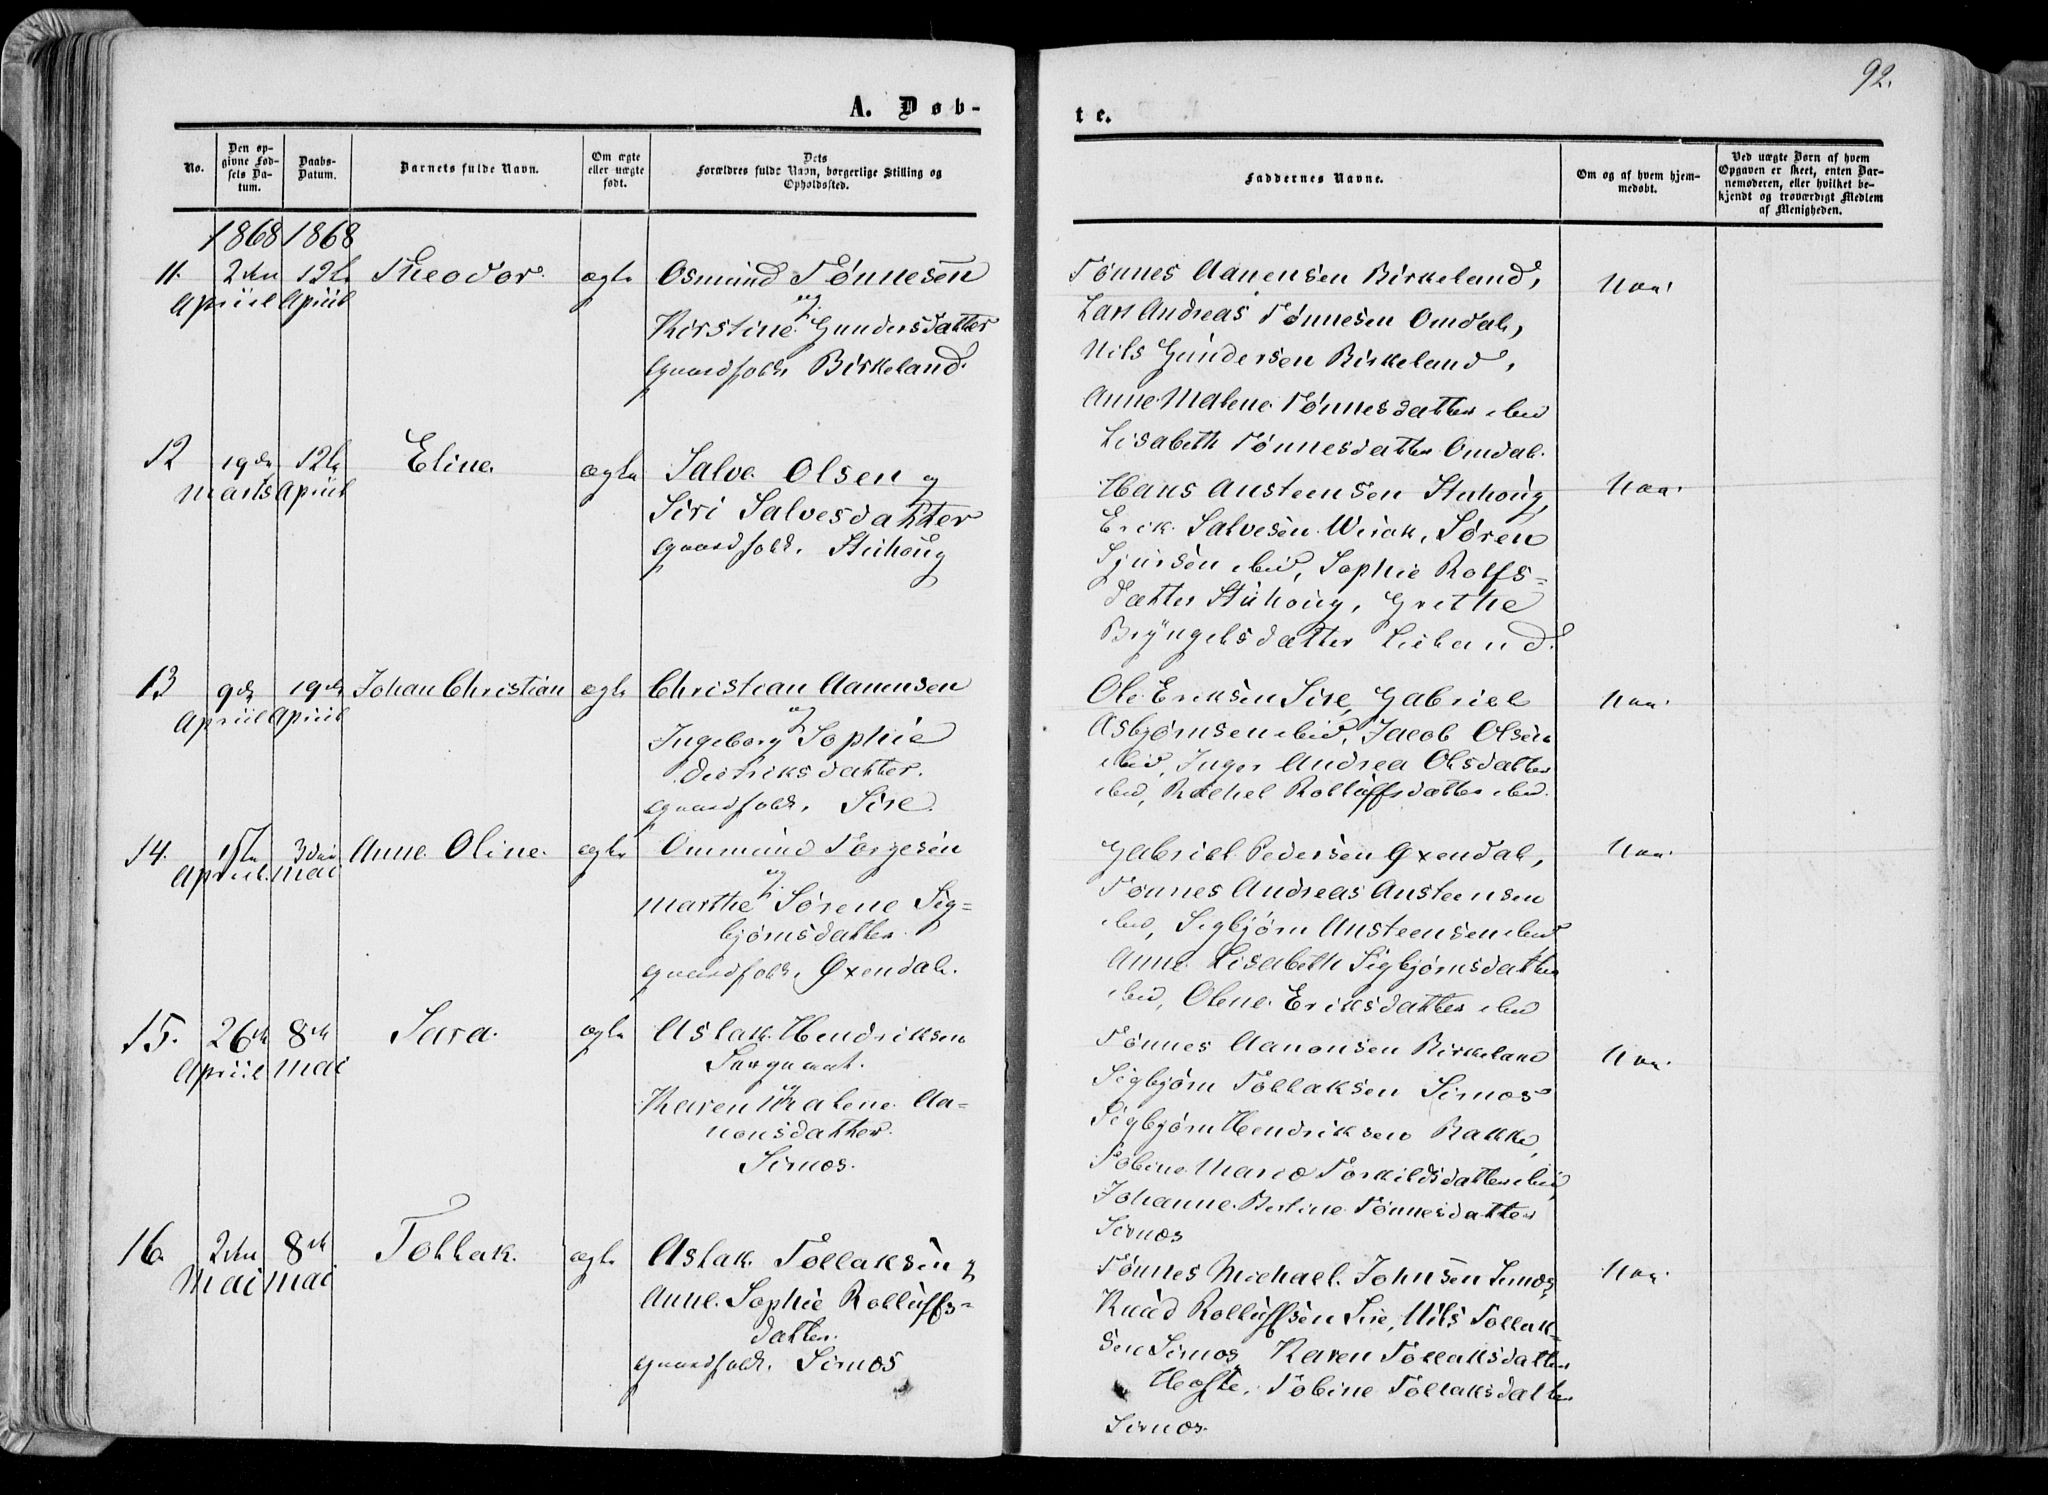 92.
A. Døb-
te.
No.
Den op-
givne Fød-
sels Da-
tum.
Daabs-
Datum.
Barnets fulde Navn.
Om ægte
eller uægte
født.
Dets
Forældres fulde Navn, borgerlige Stilling og
Opholdssted.
Faddernes Navne.
Om og af hvem hjem-
medøbt.
Ved uægte Børn af hvem
Opgaven er skeet, enten Bar-
nemoderen, eller hvilket be-
kjendt og troværdigt Medlem
af Menigheden.
1868 1868
11. 2den 12te Theodor. ægte Osmund Tønnesen
April April
og
Kirstine Gundersdatter
gaardfolk, Birkeland.
Tønnes Aanensen Birkeland,
Lars Andreas Tønnesen Omdal,
Nils Gundersen Birkeland,
Anne Malene Tønnesdatter ibid
Lisabeth Tønnesdatter Omdal.
12 19de 12te Eline ægte Salve Olsen og
Marts April
Siri Salvesdatter
gaardfolk. Stuhoug
Hans Austeensen Stuhoug,
Erik Salvesen Wirak, Søren
Sjursen ibid, Sophie Rolfs=
datter Stuhoug, Grethe
Bryngelsdatter Liland.
13 9de 19de Johan Christian ægte Christian Aanensen
April April
og
Ingeborg Sophie
Diedriksdatter.
gaardfolk. Sire.
Ole Eriksen Sire, Gabriel
Asbjørnsen ibid, Jacob Olsen
ibid, Inger Andrea Olsdatter
ibid, Rachel Rolluffsdatter ibid.
14. 3die Anne Oline. ægte Ommund Torgesen
April Mai
og
Marthe Sørene Sig=
bjørnsdatter.
gaardfolk, Øxendal.
Gabriel Pedersen Øxendal,
Tønnes Andreas Austeensen
ibid, Sigbjørn Austeensen ibid
Anne Lisabeth Sigbjørnsdatter
ibid, Olene Eriksdatter ibid
15. 26de 8de Sara. ægte Aslak Hendriksen
April Mai
og
Karen Malene Aa=
nonsdatter.
Sirnes.
Tønnes Aanonsen Birkeland
Sigbjørn Tollaksen Sirnes
Sigbjørn Hendriksen Rakke,
Tobine Marie Torkildsdatter ibid
Johanne Bertine Tønnesdatter
Sirnes
16. 2den 8de Tollak. ægte Aslak Tollaksen og
Mai Mai
Anne Sophie Rolluffs=
datter.
gaardfolk. Sirnes
Tønnes Michael Johnsen Sirnes,
Knud Rolluffsen Sire, Nils Tollak=
sen Sirnes, Karen Tollaksdatter
Tobine Tollaksdatter
Sirnes.